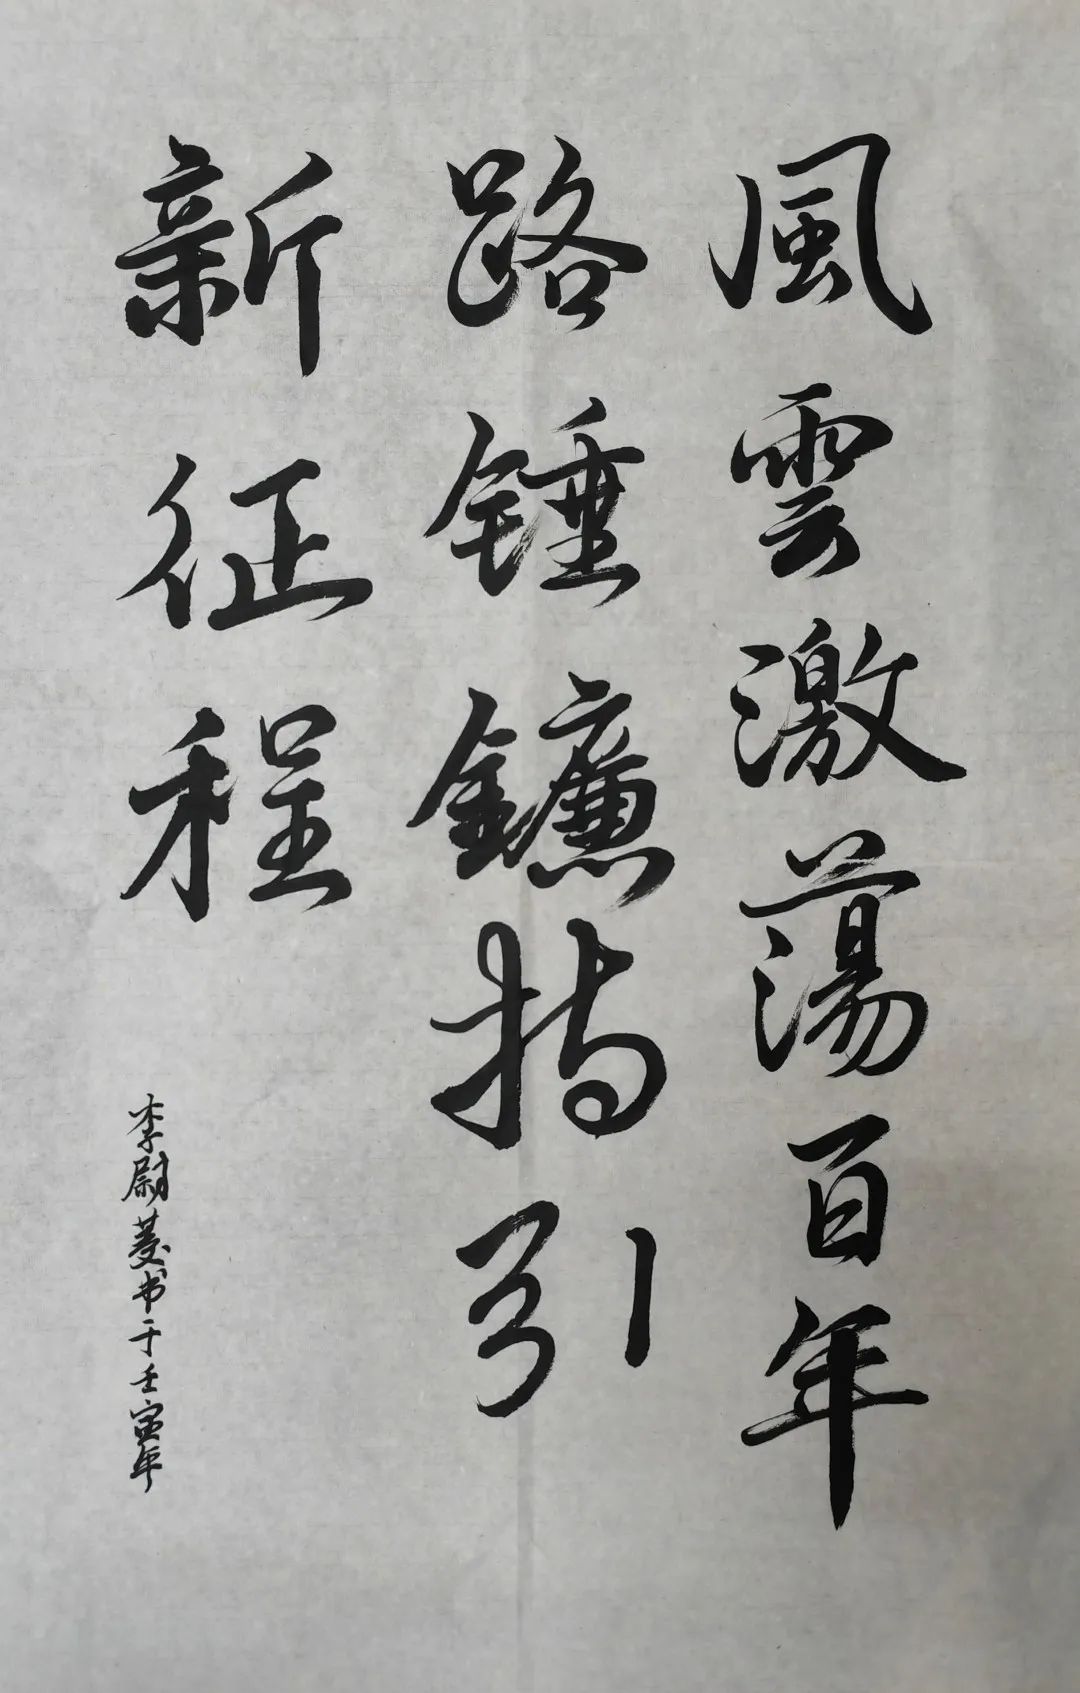 風雲激蕩百年
路锤鐮指引
新征程
李尉菱书于壬寅年